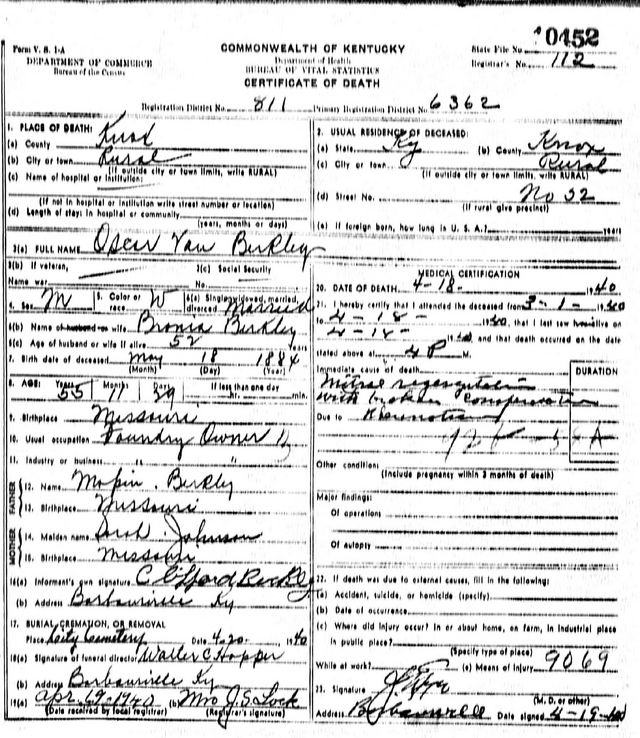 Form V. S. 1-A
DEPARTMENT OF COMMERCE
Bureau of the Census
COMMONWEALTH OF KENTUCKY
Department of Health
BUREAU OF VITAL STATISTICS
CERTIFICATE OF DEATH
State File No. 10452
Registrar's No. 112
Registration District No. 811 Primary Registration District No. 6362
1. PLACE OF DEATH:
(a) County Knox
(b) City or town Rural
(If outside city or town limits, write RURAL)
(c) Name of hospital or institution:
(If not in hospital or institution write street number or location)
(d) Length of stay: in hospital or community
(years, months or days)
2. USUAL RESIDENCE OF DECEASED:
(a) State Ky (b) County Knox
(c) City or town Rural
(If outside city or town limits, write RURAL)
(d) Street No. No 32
(If rural give precinct)
(e) If foreign born, how long in U. S. A.? years
3(a) FULL NAME Oscar Van Berkley
3(b) If veteran, Name war 3(c) Social Security No.
4. Sex M 5. Color or race W 6(a) Single, widowed, married, divorced Married
6(b) Name of husband or wife Bronia Berkley
6(c) Age of husband or wife if alive 52 Years
7. Birth date of deceased May 18 1884
(Month) (Day) (Year)
8. AGE: Years 55 Months 11 Days If less than one day hr. min.
9. Birthplace Missouri
10. Usual occupation Foundry Owner
11. Industry or business " "
FATHER
12. Name Berkley
13. Birthplace Missouri
MOTHER
14. Maiden name Sarah Johnson
15. Birthplace Missouri
16(a) Informent's own signature Clifford Berkley
(b) Address Barbourville Ky
17. BURIAL, CREMATION, OR REMOVAL
Place City Cemetery Date 4-20- 1940
18(a) Signature of funeral director Walter C Hopper
(b) Address Barbourville Ky
19(a) Apr. 19-1940 (b) Mrs J. S. Lock
(Date received by local registrar) (Registrar's signature)
MEDICAL CERTIFICATION
20. DATE OF DEATH 4-18- 1940
21. I hereby certify that I attended the deceased from 3-1- 1940
to 4-18- 1940, that I last saw him alive on
4-18- 1940, and that death occurred on the date
stated above at 4 P M.
Immediate cause of death DURATION
Mitral regurgitation
with broken compensation
Due to Rheumatism
Other conditions
(Include pregnancy within 3 months of death)
Major findings:
Of operations
Of autopsy
22. If death was due to external causes, fill in the following:
(a) Accident, suicide, or homicide (specify)
(b) Date of occurrence
(c) Where did injury occur? In or about home, on farm, in industrial place
in public place?
(Specify type of place)
While at work? (e) Means of injury 9069
23. Signature
(M. D. or other)
Address Barbourville Date signed 4-19-40